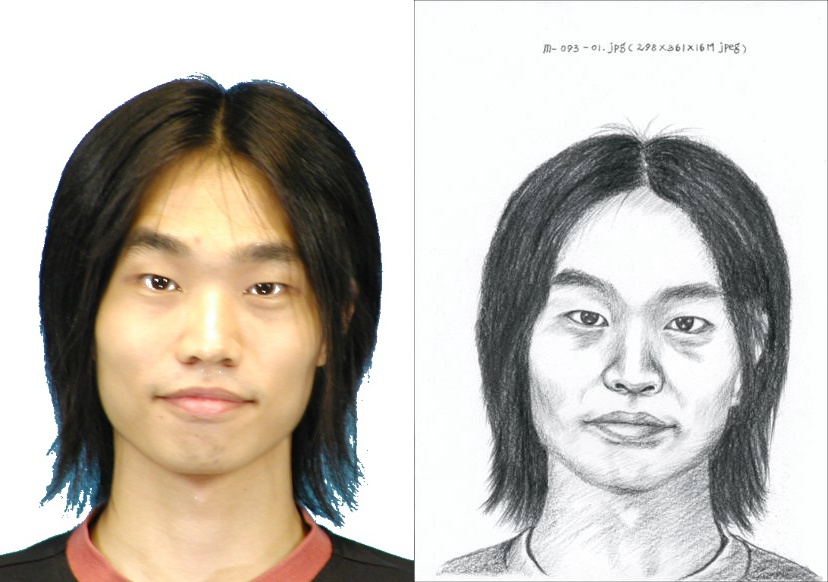 m-093-01.jpg(298×361×16M jpeg)